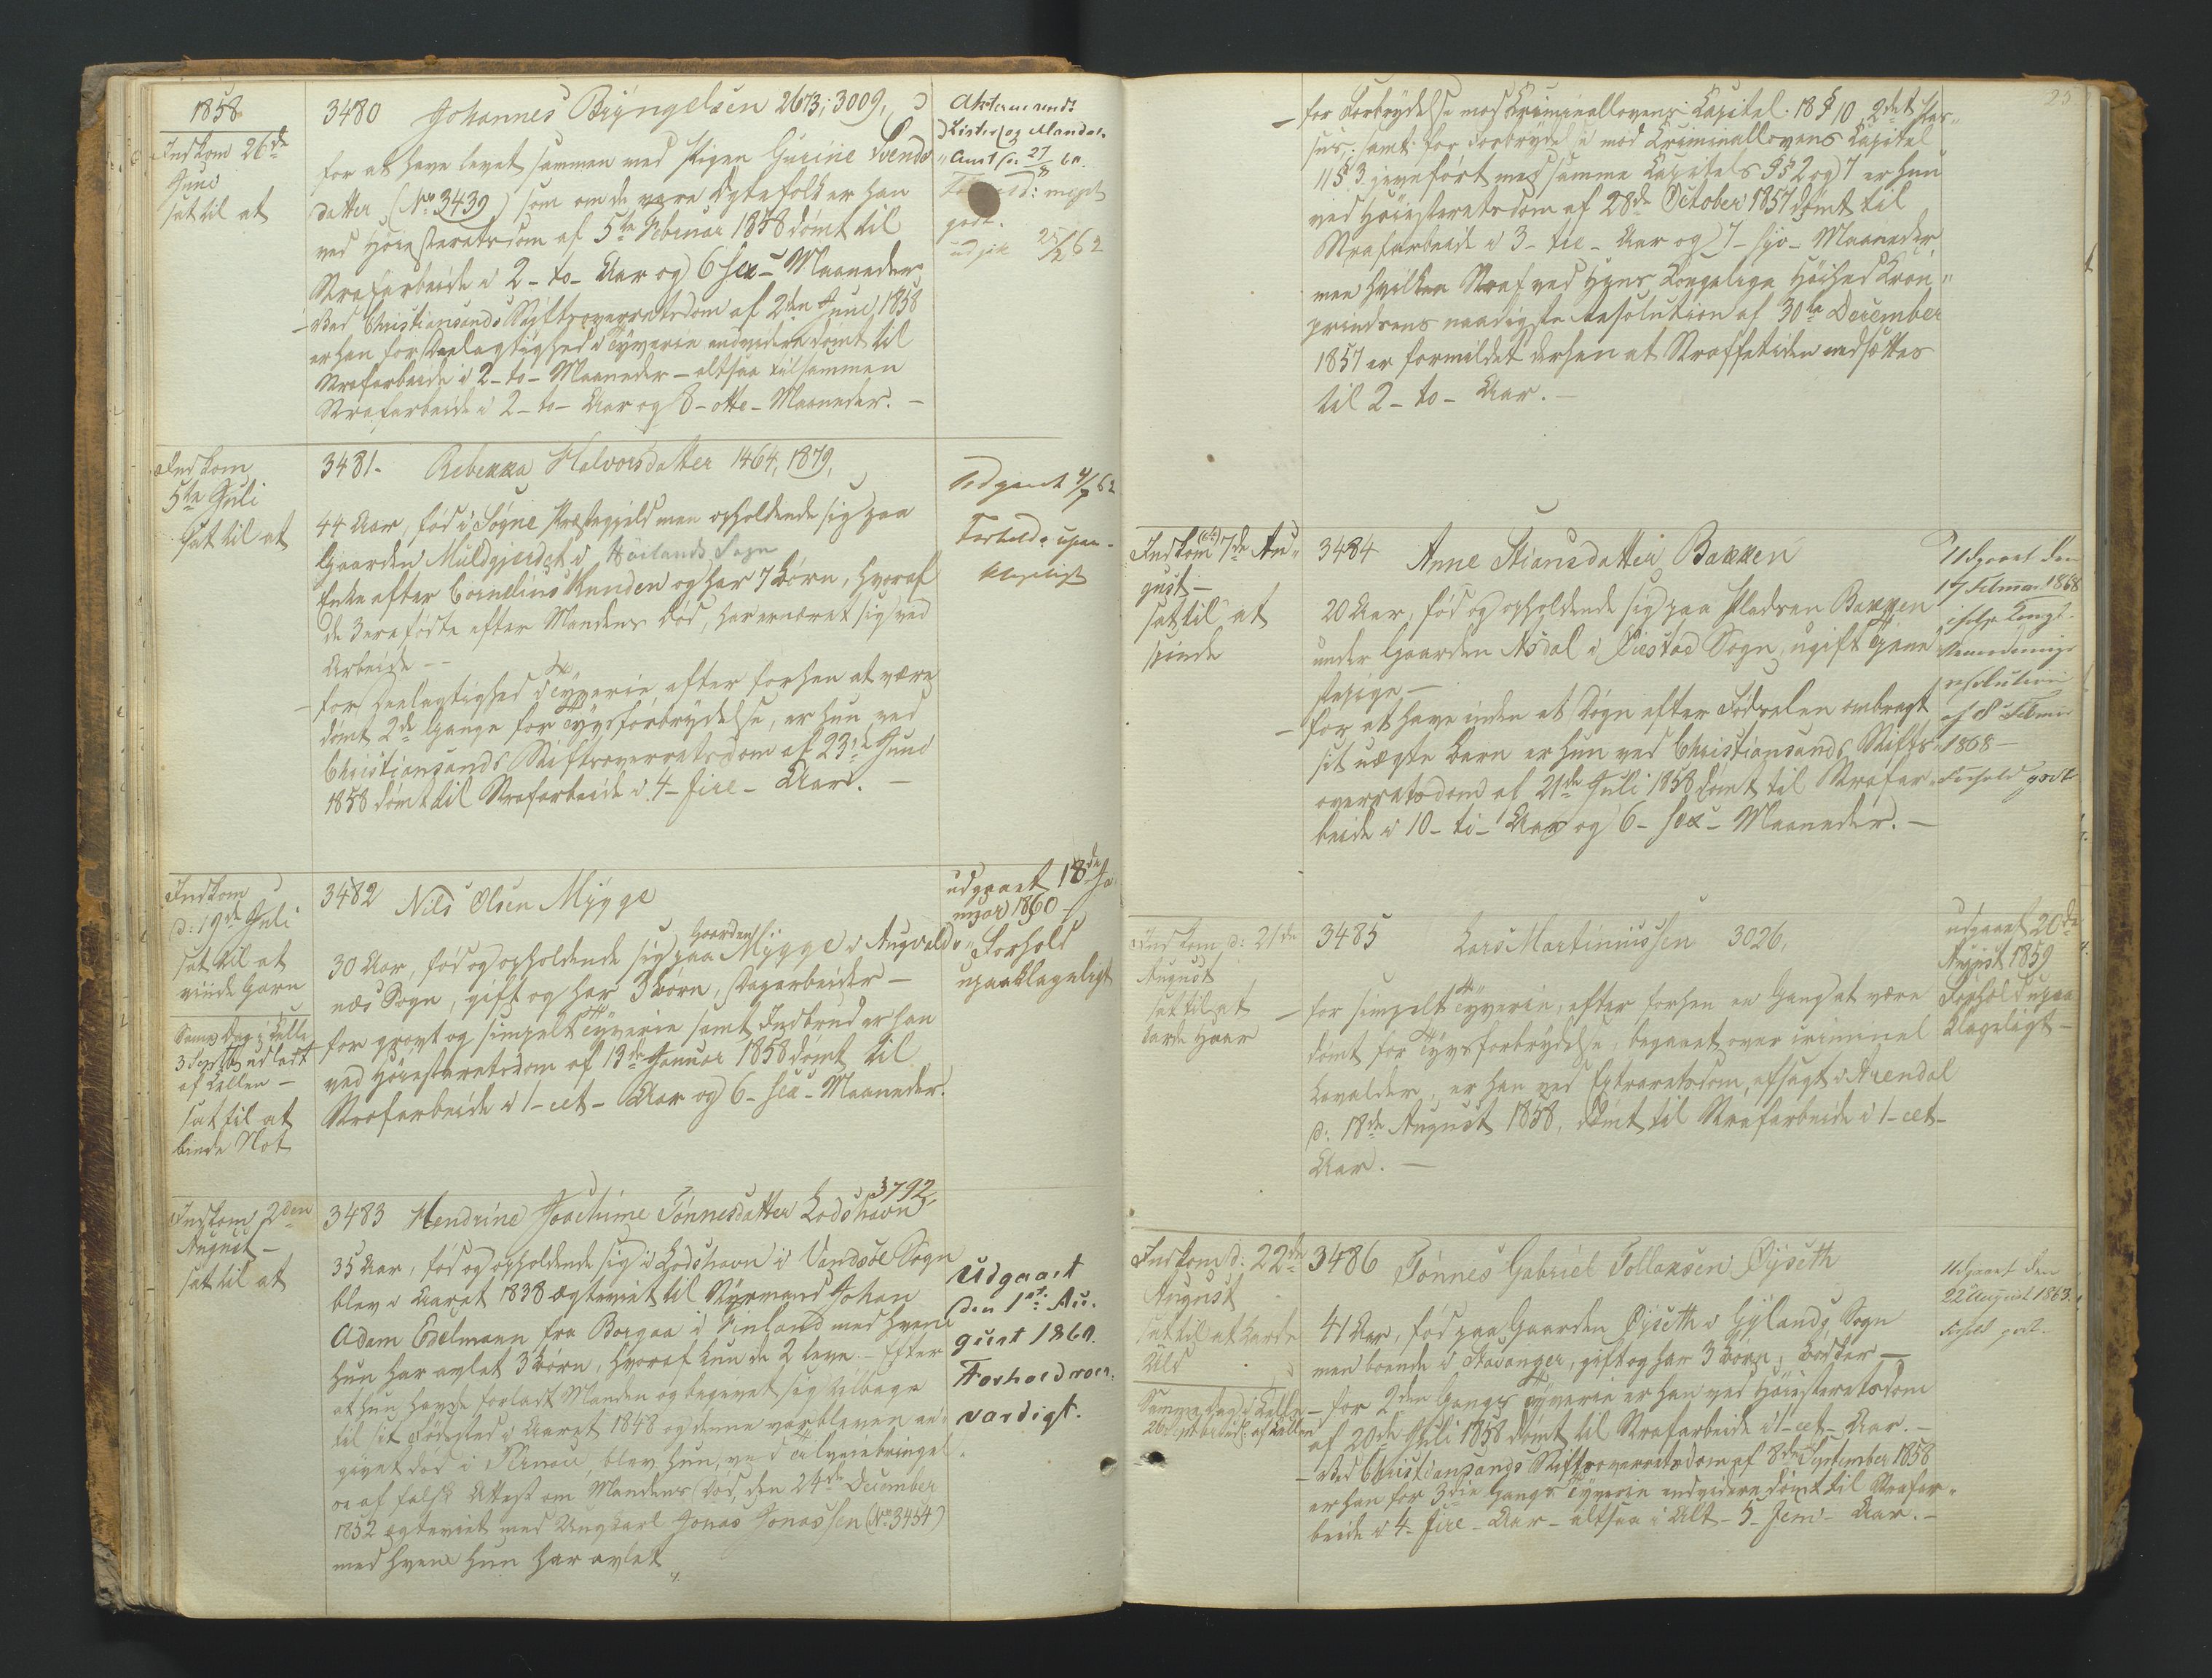 1858
Indkom 26de
Juni
sat til at
3480 Johannes Bryngelsen 2673, 3009,
for at have levet sammen med Pigen Gurine Svends
datter (No 3439) som om de vare Ægtefolk er han
ved Høiesteretsdom af 5te Februar 1858 dømt til
Strafarbeide i 2 - to - Aar og 6 sex - Maaneder
- Ved Christiansands Stiftsoverretsdom af 2den Juni 1858
er han for Deelagtighed i Tyverie endvidere dømt til
Strafarbeide i 2 - to - Maaneder - altsaa tilsammen
Strafarbeide i 2 - to - Aar og 8 - otte - Maaneder. -
Lister og Mandals
Amt
meget
godt.
udgik 25/2 62
Indkom
5te Juli
sat til at
3481- Rebekka Halvorsdatter 1464, 1879,
44 Aar, fød i Søgne Præstegjeld men opholdende sig paa
Gaarden Muldgjerdet i Høilands Sogn
Enke efter Cornelius Knuden og har 7 Børn, hvoraf
de 3 ere fødte efter Mandens Død, har ernæret sig ved
Arbeide --
- for Deelagtighed i Tyverie efter forhen at være
dømt 2de Gange for Tyvsforbrydelse, er hun ved
Christiansands Stiftsoverretsdom af 23de Juni
1858 dømt til Strafarbeide i 4 - fire - Aar. -
Udgaaet 4/7 62
Forhold: upaa-
klageligt
Indkom
d: 19de Juli
sat til at
vinde Garn
3 Sept udladt
af Cellen -
sat til at
binde Not
3482 Nils Olsen Mygge
30 Aar, fød og opholdende sig paa Gaarden Mygge i Augvalds-
næs Sogn, gift og har 3 Børn, Dagarbeider -
for grovt og simpelt Tyverie samt Indbrud er han
ved Høiesteretsdom af 13de Januar 1858 dømt til
Strafarbeide i 1 - et - Aar og 6 - sex - Maaneder.
udgaaet 18de Ja-
nuar 1860 -
Forhold
upaaklageligt
Indkom 2den
August -
sat til at
3483 Hendrine Joachime Tønnesdatter Lodshavn 3792,
35 Aar, fød og opholdende sig i Lodshavn i Vandsøe Sogn
blev i Aaret 1838 ægteviet til Styrmand Johan
Adam Edelmann fra Borgaa i Finland med hvem
hun har avlet 3 Børn, hvoraf kun de 2 leve. - Efter
at hun havde forladt Manden og begivet sig tilbage
til sit Fødested i Aaret 1848 og denne var bleven an-
givet død i Pernau, blev hun, ved Tilveiebringel-
se af falsk Attest om Mandens Død, den 24de December
1852 ægteviet med Ungkarl Jonas Jonassen (No 3454)
med hvem hun har avlet
Udgaaet
den 1st Au-
gust 1860.
Forhold roes-
værdigt.
25
- for Forbrydelse mod Criminallovens Kapitel 18 § 10, 2det Pas-
sus, samt for Forbrydelse mod Criminallovens Kapitel
11 § 3 jevnført med samme Kapitels §§ 2 og 7 er hun
ved Høiesteretsdom af 28de October 1857 dømt til
Strafarbeide i 3 - tre - Aar og 7 - syv - Maaneder,
men hvilken Straf ved Hans Kongelige Høihed Kron-
prindsens naadigste Resolution af 30te December
1857 er formildet derhen at Straffetiden nedsættes
til 2 - to - Aar. -
Indkom 7de Au-
gust -
sat til at
spinde
3484 Anne Stiansdatter Bakken
20 Aar, fød og opholdende sig paa Pladsen Bakken
under Gaarden Asdal i Øiestad Sogn, ugift Tjene-
stepige -
- for at have inden et Døgn efter Fødselen ombragt
sit uægte Barn er hun ved Christiansands Stifts-
overretsdom af 21de Juli 1858 dømt til Strafar-
beide i 10 - ti - Aar og 6 - sex - Maaneder. -
Udgaaet den
17 Februar 1868
ifølge Kongl.
Benaadnings
resolution
af 8 Februar
1868 -
Forhold godt
Indkom d: 21de
August
sat til at
karde Haar
3485 Lars Martiniussen 3026,
- for simpelt Tyverie, efter forhen en Gang at være
dømt for Tyvsforbrydelse, begaaet over criminel
Lavalder, er han ved Extraretsdom, afsagt i Arendal
d: 18de August 1858, dømt til Strafarbeide i 1 - et -
Aar. -
udgaaet 20de
August 1859
Forhold upaa-
klageligt -
Indkom d: 22de
August
sat til at karde
Uld
3486 Tønnes Gabriel Tollaksen Øyseth
41 Aar, fød paa Gaarden Øyseth i Gylands Sogn
men boende i Stavanger, gift og har 3 Børn, Bødker -
- for 2den Gangs Tyverie er han ved Høiesteretsdom
af 20de Juli 1858 dømt til Strafarbeide i 1 - et - Aar. -
- Ved Christiansands Stiftsoverretsdom af 8de September 1858
er han for 3die Gangs Tyverie endvidere dømt til Strafar-
beide i 4 - fire - Aar - altsaa i Alt - 5 - fem - Aar. -
Udgaaet den
22 August 1863.
Forhold godt.